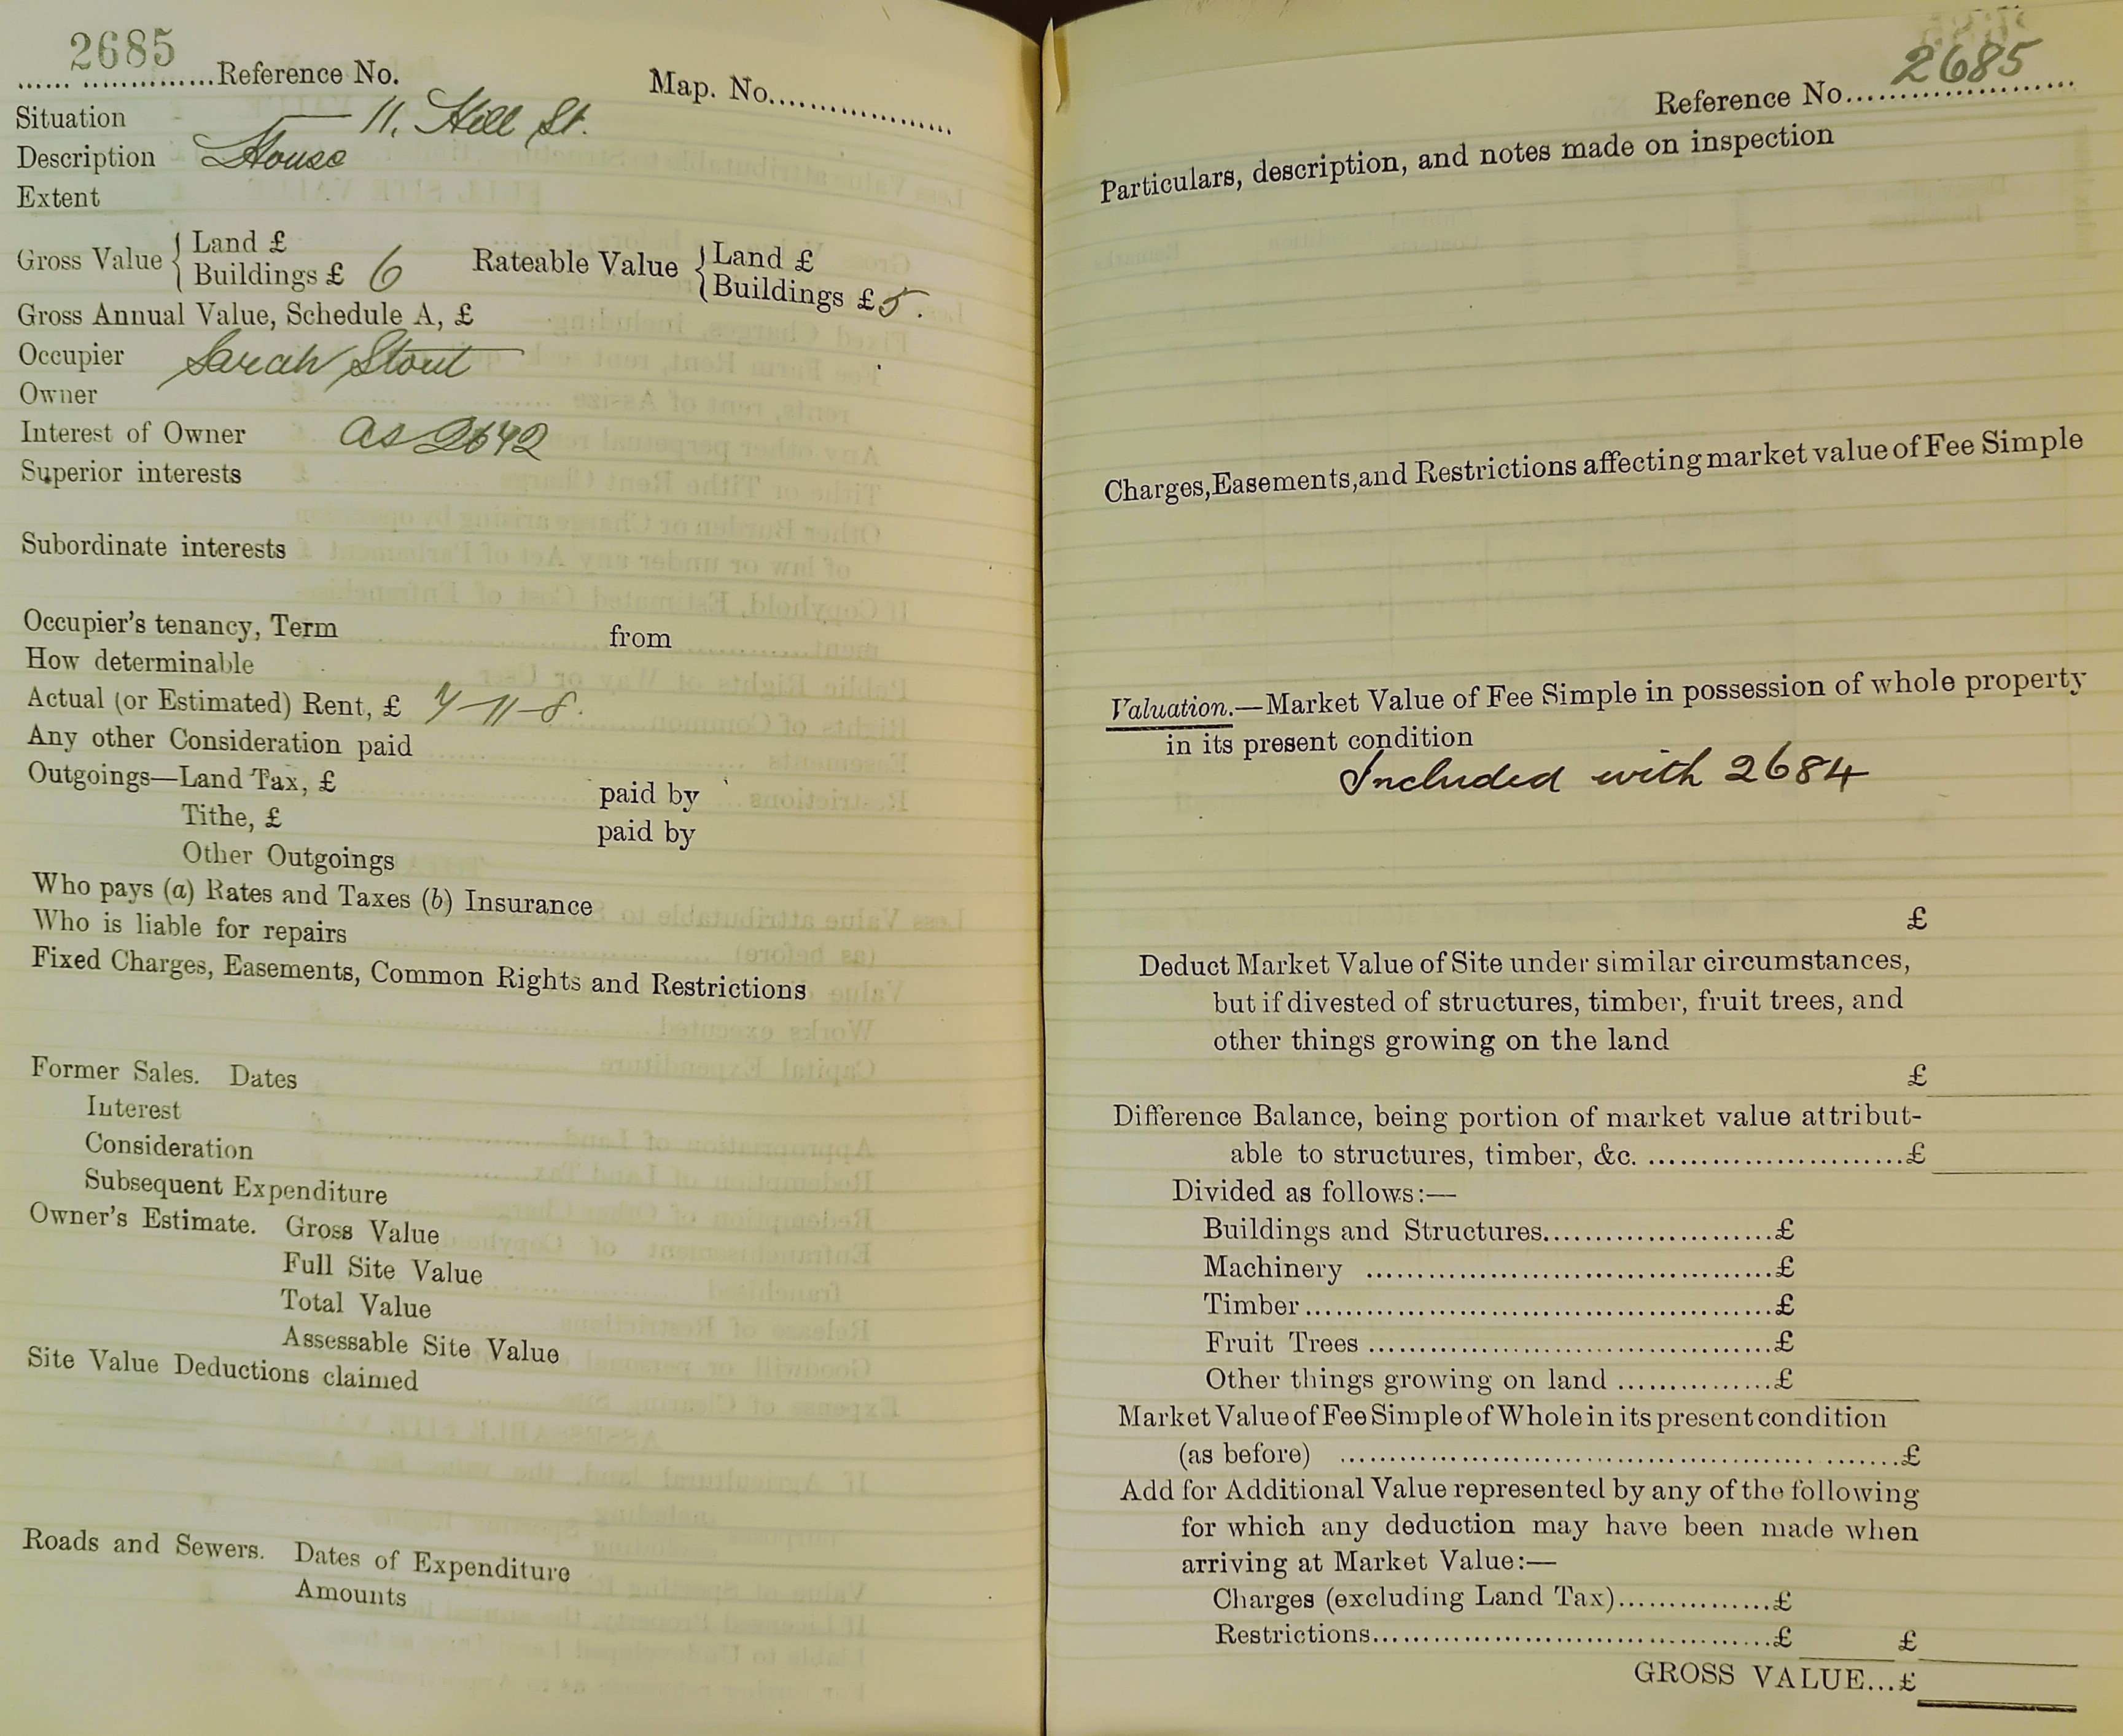 2685
...... ...............Reference No.
Map. No..................
Situation 11, Hill St.
Description House
Extent
Gross Value { Land £
Buildings £ 6
Rateable Value { Land £
Buildings £ 5.
Gross Annual Value, Schedule A, £
Occupier Sarah Stout
Owner
Interest of Owner as 2642
Superior interests
Subordinate interests
Occupier's tenancy, Term from
How determinable
Actual (or Estimated) Rent, £ 7-11-8.
Any other Consideration paid
Outgoings—Land Tax, £ paid by
Tithe, £ paid by
Other Outgoings
Who pays (a) Rates and Taxes (b) Insurance
Who is liable for repairs
Fixed Charges, Easements, Common Rights and Restrictions
Former Sales. Dates
Interest
Consideration
Subsequent Expenditure
Owner's Estimate. Gross Value
Full Site Value
Total Value
Assessable Site Value
Site Value Deductions claimed
Roads and Sewers. Dates of Expenditure
Amounts
2685
Reference No......................
Particulars, description, and notes made on inspection
Charges, Easements, and Restrictions affecting market value of Fee Simple
Valuation.—Market Value of Fee Simple in possession of whole property
in its present condition
Included with 2684
£
Deduct Market Value of Site under similar circumstances,
but if divested of structures, timber, fruit trees, and
other things growing on the land
£
Difference Balance, being portion of market value attribut-
able to structures, timber, &c. .........................£
Divided as follows:—
Buildings and Structures......................£
Machinery .......................................£
Timber.............................................£
Fruit Trees .......................................£
Other things growing on land ...............£
Market Value of Fee Simple of Whole in its present condition
(as before) ......................................................£
Add for Additional Value represented by any of the following
for which any deduction may have been made when
arriving at Market Value:—
Charges (excluding Land Tax)...............£
Restrictions.......................................£ £
GROSS VALUE...£